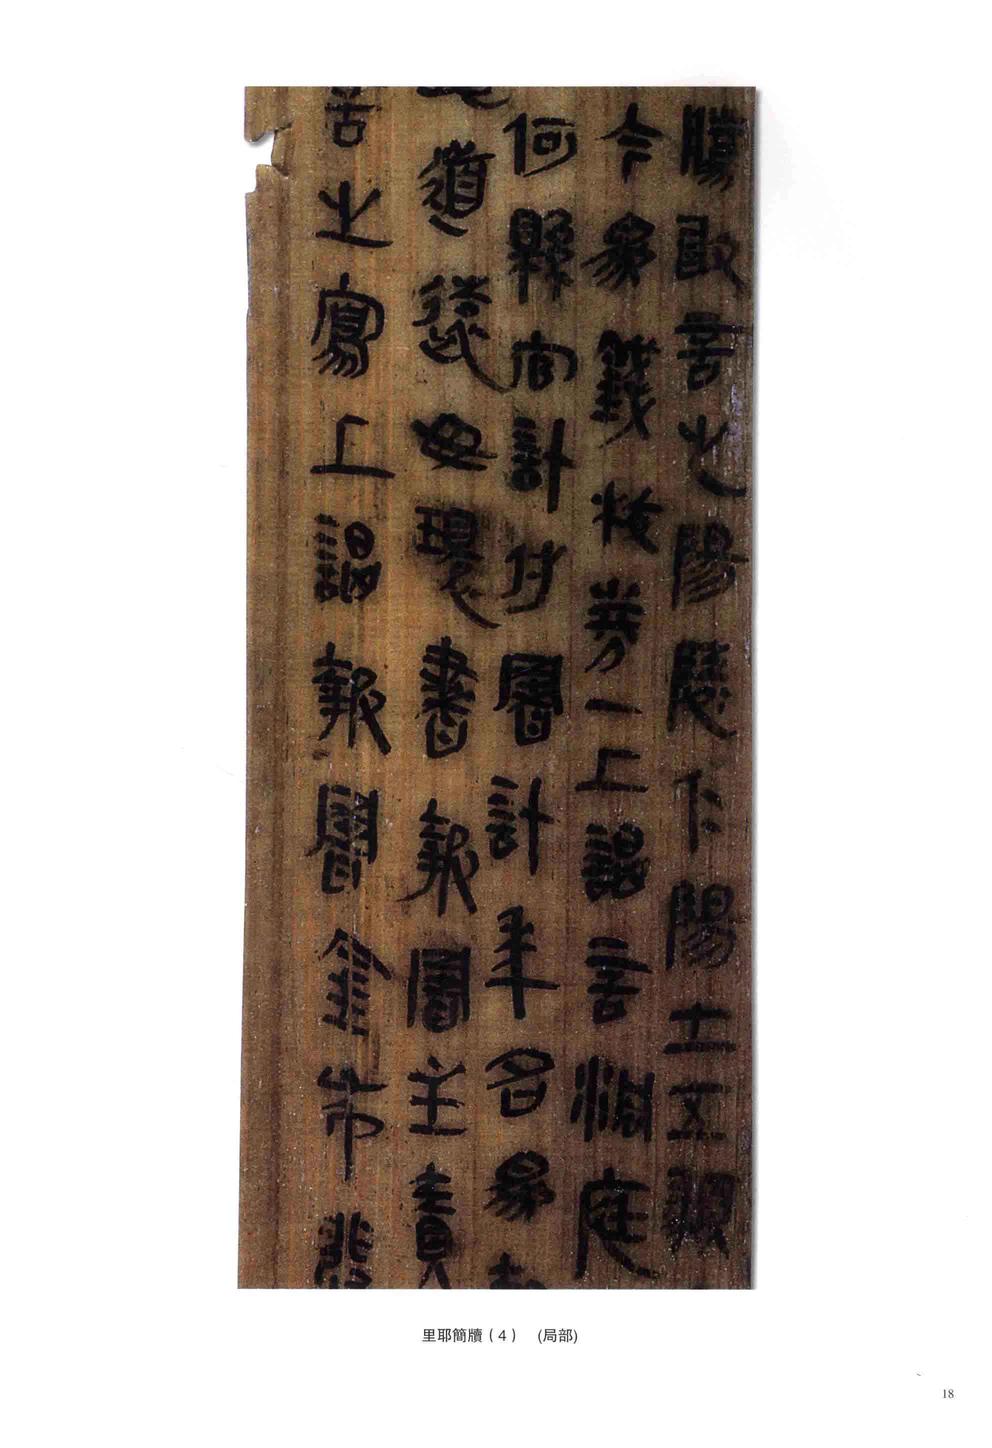 騰敢言之陽陵仁陽士五頯
今為錢校券一上謁言洞庭
何縣官計付署計年名為報
道遠毋環書報署主責
言之寫上謁報署金布發
里耶簡牘（4） (局部)
18